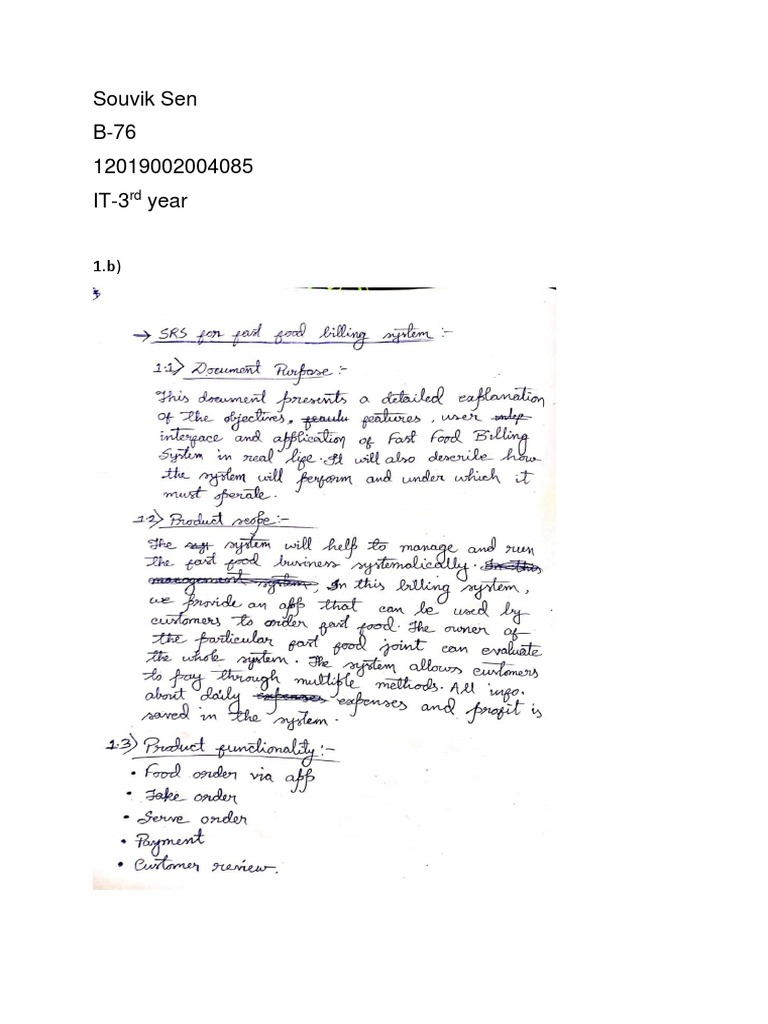 Souvik Sen
B-76
12019002004085
IT-3rd year
1.b)
→ SRS for fast food billing system :-
1.1) Document Purpose :-
This document presents a detailed explanation
of the objectives, features, user
interface and application of Fast Food Billing
System in real life. It will also describe how
the system will perform and under which it
must operate.
1.2) Product scope :-
The system will help to manage and run
the fast food business systematically. In this
management system, In this billing system,
we provide an app that can be used by
customers to order fast food. The owner of
the particular fast food joint can evaluate
the whole system. The system allows customers
to pay through multiple methods. All info.
about daily expenses expenses and profit is
saved in the system.
1.3) Product functionality :-
• Food order via app
• Take order
• Serve order
• Payment
• Customer review.